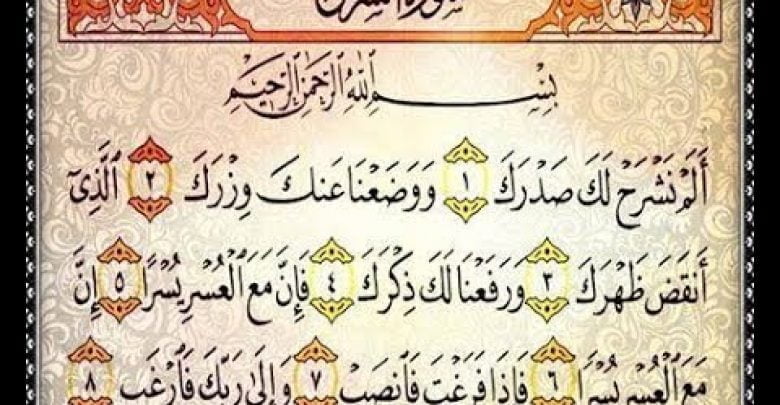 سورة الشرح
بِسْمِ اللَّهِ الرَّحْمَٰنِ الرَّحِيمِ
أَلَمْ نَشْرَحْ لَكَ صَدْرَكَ ١ وَوَضَعْنَا عَنكَ وِزْرَكَ ٢ الَّذِي
أَنقَضَ ظَهْرَكَ ٣ وَرَفَعْنَا لَكَ ذِكْرَكَ ٤ فَإِنَّ مَعَ الْعُسْرِ يُسْرًا ٥ إِنَّ
مَعَ الْعُسْرِ يُسْرًا ٦ فَإِذَا فَرَغْتَ فَانصَبْ ٧ وَإِلَىٰ رَبِّكَ فَارْغَب ٨